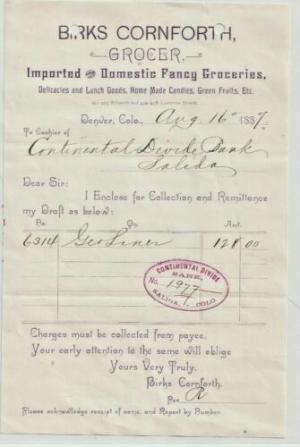 BIRKS CORNFORTH,
GROCER,
Imported AND Domestic Fancy Groceries,
Delicacies and Lunch Goods, Home Made Candies, Green Fruits, Etc.
Fifteenth and Lawrence Street.
Denver, Colo., Aug. 16" 1887.
To Cashier of
Continental Divide Bank
Salida
Dear Sir:
I Enclose for Collection and Remittance
my Draft as below:
No. On Amt.
6314 Geo Liner 128 00
CONTINENTAL DIVIDE
BANK.
No. 1977
SALIDA, COLO.
Charges must be collected from payee.
Your early attention to the same will oblige
Yours Very Truly,
Birks Cornforth,
Per R
Please acknowledge receipt of same, and Report by Number.